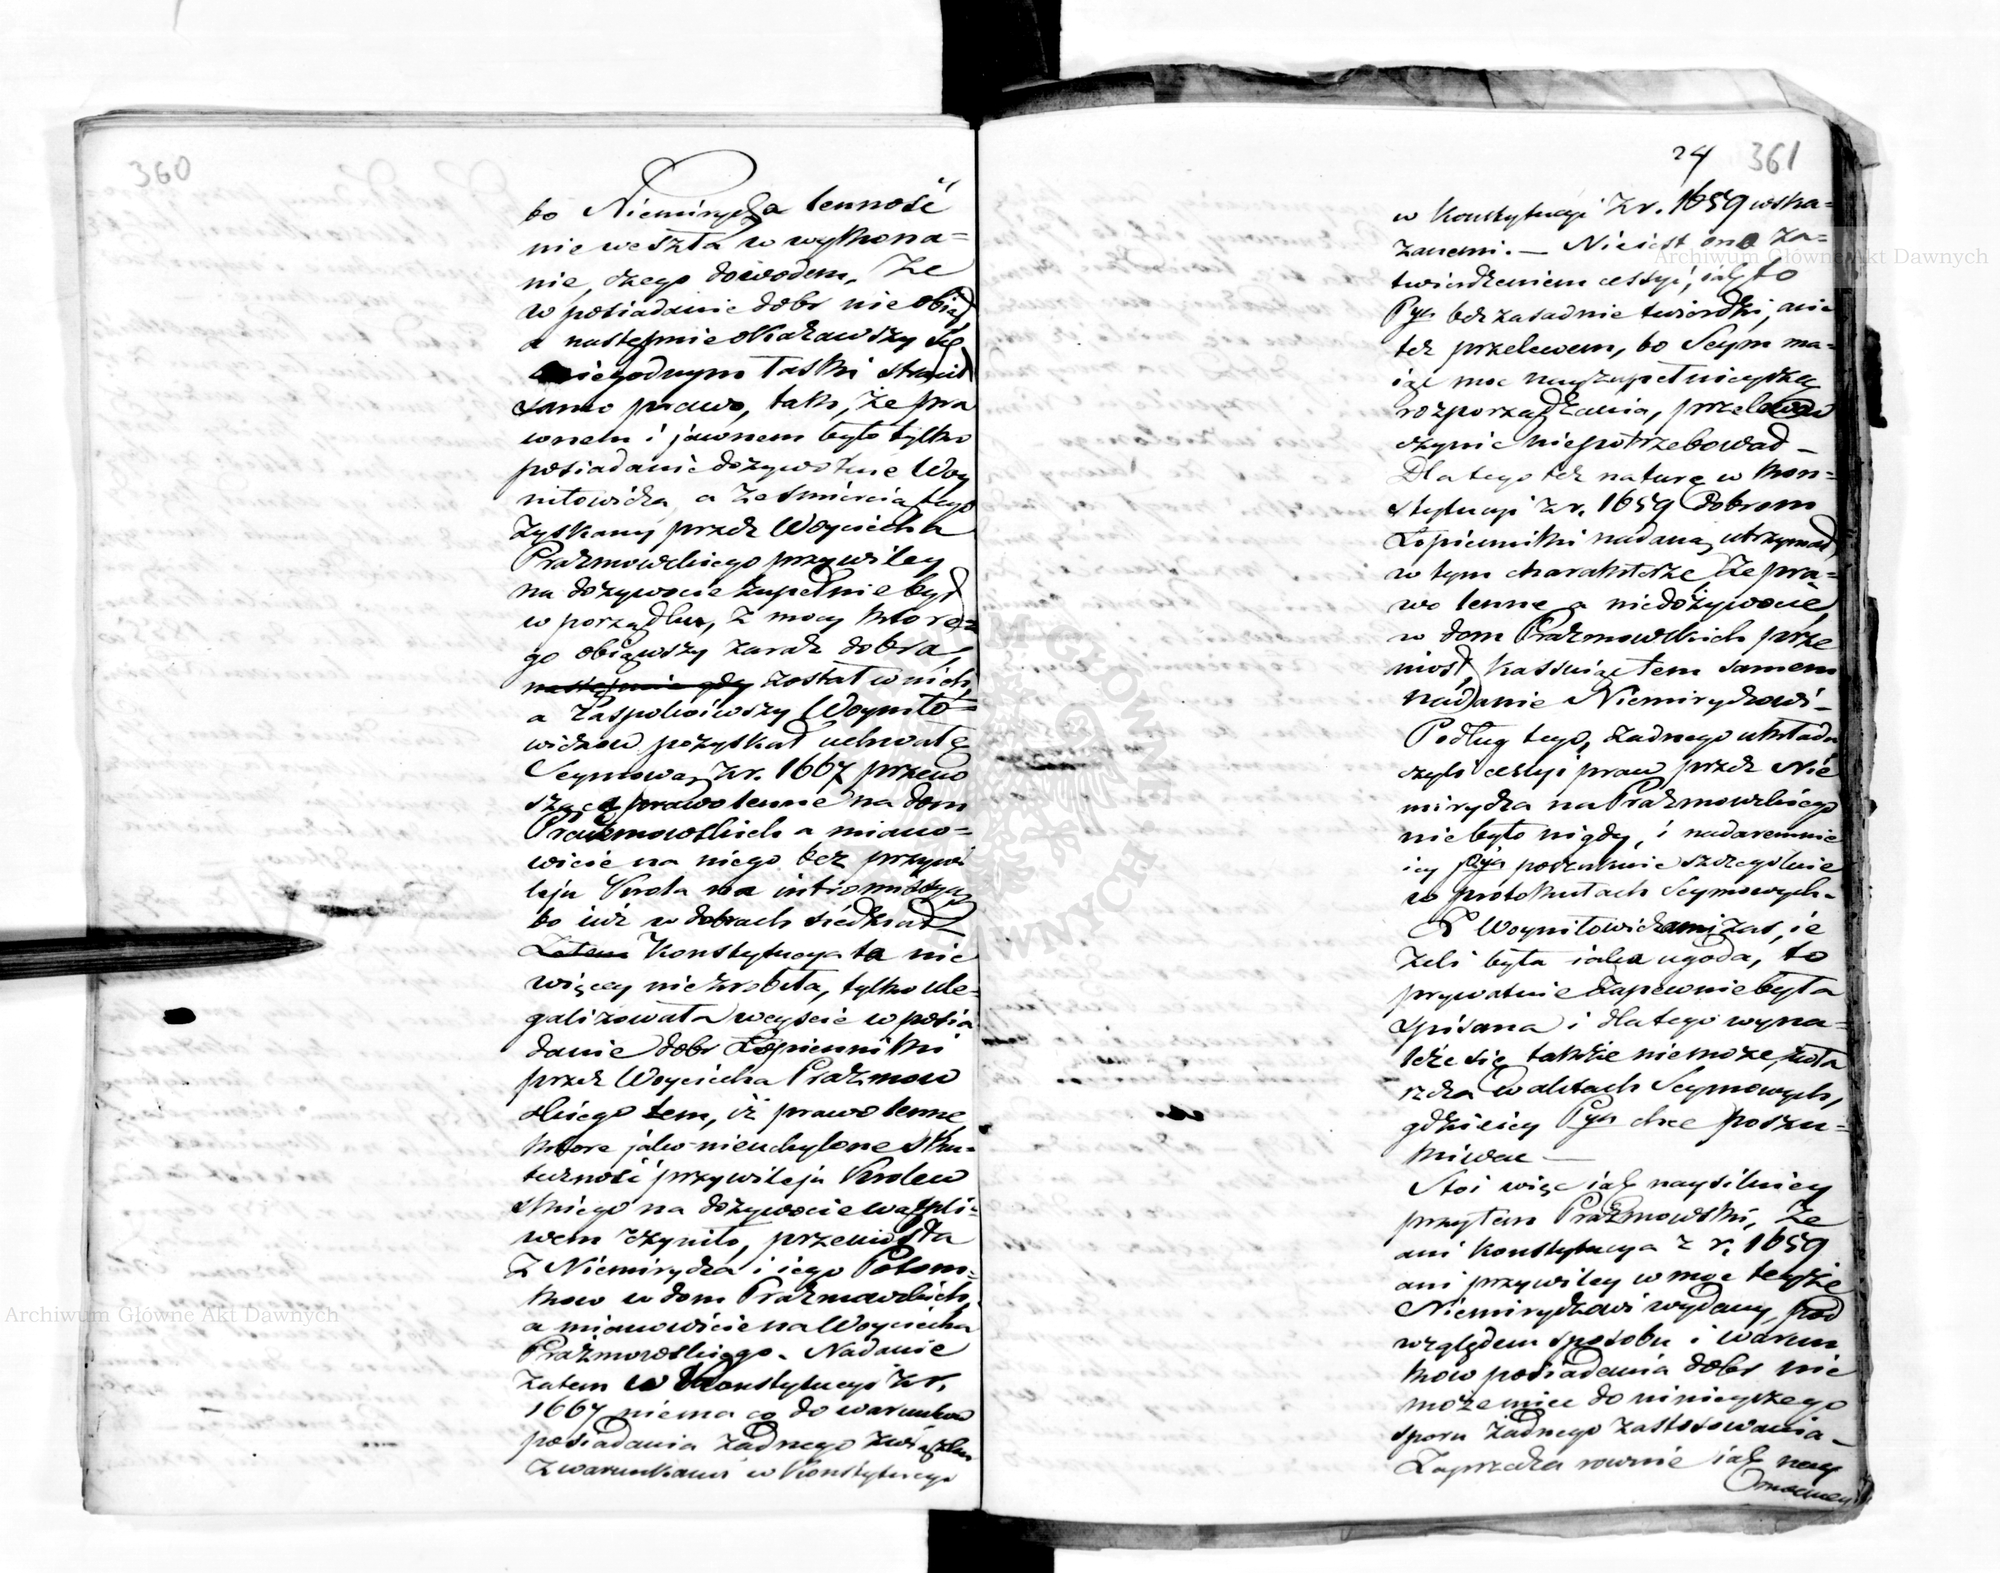 360
bo Niemirydza lenność
nie weszła w wykona=
nie, czego dowodem, że
w posiadanie dobr nie obiął
a następnie okazawszy się
niegodnym łaski stracił
samo prawo, tak, że pra
wnem i jawnem było tylko
posiadanie dożywotnie Woy
niłowicza, a ze śmiercią tego
zyskany przez Woyciecha
Prażmowskiego przywiley
na dożywocie zupełnie był
w porządku, z mocy które=
go obiąwszy zaraz dobra,
następnie gdy został w nich,
a zaspokoiwszy Woyniło=
wiczow pozyskał uchwałę
Seymową z r. 1667 przeno
szącą prawo lenne na dom
Prażmowskich a miano=
wicie na niego bez przywi
leju Krola na intromissyą
bo iuż w dobrach siedział
Zatem Konstytucya ta nic
więcey nie zrobiła, tylko ule=
galizowała weyście w posia
danie dobr Łopienniki
przez Woyciecha Prażmow
skiego tem, iż prawo lenne
ktore jako nieuchylone sku=
teczność przywileju Krolew
skiego na dożywocie wątpli=
wem czyniło, przeniosła
z Niemirydza i iego Potom=
kow w dom Prażmowskich,
a mianowicie na Woyciecha
Prażmowskiego. Nadanie
zatem w Konstytucyi z r.
1667 niema co do warunkow
posiadania żadnego związku
z warunkami w Konstytucyi
24 361
w Konstytucyi z r. 1659 wska=
zanemi. — Nie iest ona za=
twierdzeniem cessyi, iak to
Pyn bezzasadnie twierdzi, ani
też przelewem, bo Seym ma=
iąc moc nayzupełnieyszą
rozporządzania, przelewow
czynić niepotrzebował —
Dlatego też naturę w Kon=
stytucyi z r. 1659 dobrom
Łopienniki nadaną utrzymał
w tym charakterze że pra=
wo lenne a niedożywocie,
w dom Prażmowskich prze
niosł, kassuiąc tem samem
nadanie Niemirydzowi —
Podług tego, żadnego układu
czyli cessyi praw przez Nie
mirydza na Prażmowskiego
nie było nigdy, i nadaremnie
iey Pyn poszukuie szczegolnie
w protokułach Seymowych.
Z Woyniłowiczami zas, ie
żeli była iaka ugoda, to
prywatnie zapewnie była
spisana i dlatego wyna=
leźć się także niemoże, zwła
szcza w aktach Seymowych,
gdzie iey Pyn chce poszu=
kiwać —
Stoi więc iak naysilniey
przytem Prażmowski, że
ani Konstytucya z r. 1659
ani przywiley w moc teyże
Niemirydzowi wydany, pod
względem sposobu i warun
kow posiadania dobr nie
może miec do ninieyszego
sporu żadnego zastosowania —
Zaprzecza rownie iak nay
mocniey
Archiwum Główne Akt Dawnych
Archiwum Główne Akt Dawnych